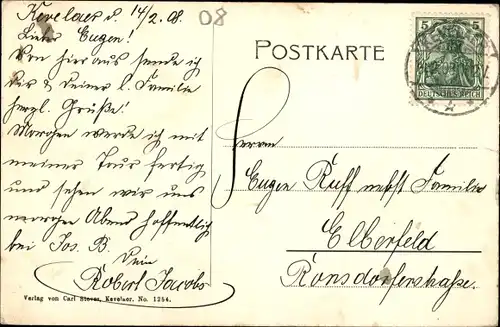 Kevelaer d. 14/2.08.
08
Lieber Eugen!
Von hier aus sende ich
dir & deiner l. Familie
herzl. Grüße!
Morgen werde ich mit
meiner Tour fertig
und sehen wir uns
morgen Abend hoffentlich
bei Jos. B.
Dein
Robert Jacobs
Verlag von Carl Stever, Kevelaer. No. 1254.
POSTKARTE
5 5
DEUTSCHES REICH
Herrn
Eugen Ruff nebst Familie
Elberfeld
Ronsdorferstraße.